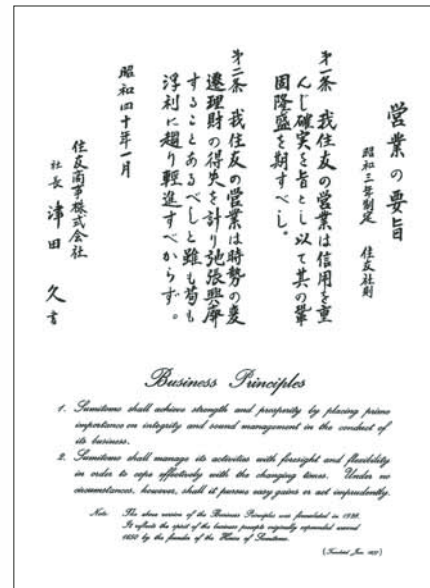 営業の要旨
昭和三年制定　住友社則
第一条　我住友の営業は信用を重
んじ確実を旨とし以て其の鞏
固隆盛を期すべし。
第二条　我住友の営業は時勢の変
遷理財の得失を計り弛張興廃
することあるべしと雖も苟も
浮利に趨り軽進すべからず。
昭和四十年一月
住友商事株式会社
社長　津田　久　書
Business Principles
1. Sumitomo shall achieve strength and prosperity by placing prime
importance on integrity and sound management in the conduct of
its business.
2. Sumitomo shall manage its activities with foresight and flexibility
in order to cope effectively with the changing times. Under no
circumstances, however, shall it pursue easy gains or act imprudently.
Note: The above version of the Business Principles was formulated in 1928.
It reflects the spirit of the business precepts originally expounded around
1650 by the founder of the House of Sumitomo.